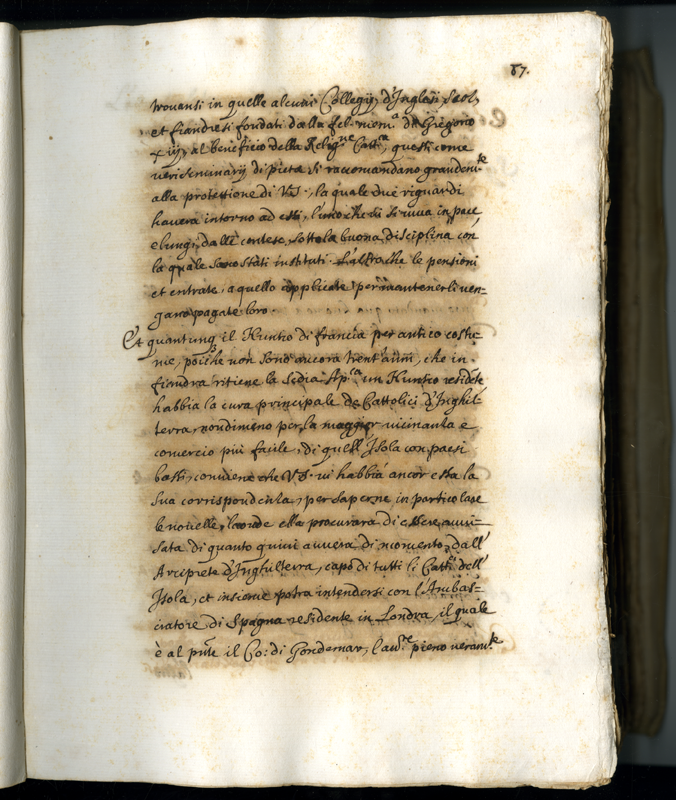 87.
trovansi in quelle alcuni Collegij d'Inglesi, Scoz.
et fiandresi fondati dalla fel. mem.a di Gregorio
xiij, al beneficio della Relig.ne Catt.ca, questi come
veri seminarij di pietà si raccomandano grandem.te
alla protettione di V.S., la quale due riguardi
haverà intorno ad essi, l'uno che si viva in pace,
e lungi dalle contese, sotto la buona disciplina con
la quale sono stati instituti. L'altro che le pensioni
et entrate, a quello applicate per mantenerli ven=
gano pagate loro.
Et quantunq. il Nuntio di francia per antico costu=
me, poiche non sono ancora trent'anni, che in
fiandra ritiene la Sedia Ap.ca un Nuntio residete
habbia la cura principale de Cattolici d'Inghil=
terra, nondimeno per la maggior vicinanza e
comercio più facile, di quell'Isola con paesi
bassi, conviene che V.S. vi habbia ancor essa la
sua corrispondenza, per saperne in particolare
le novelle, laonde ella procurarà di essere avvi=
sata di quanto quivi avverà di momento, dall'
Arciprete d'Inghilterra, capo di tutti li Catt.ci dell'
Isola, et insieme potrà intendersi con l'Ambas=
ciatore di Spagna residente in Londra, il quale
è al pnte il Co: di Gondemar, Cav.re pieno veram.te